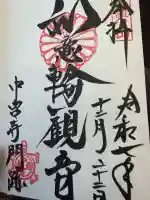 奉拝
令和七年
十二月二十二日
如意輪観音
中宮寺門跡